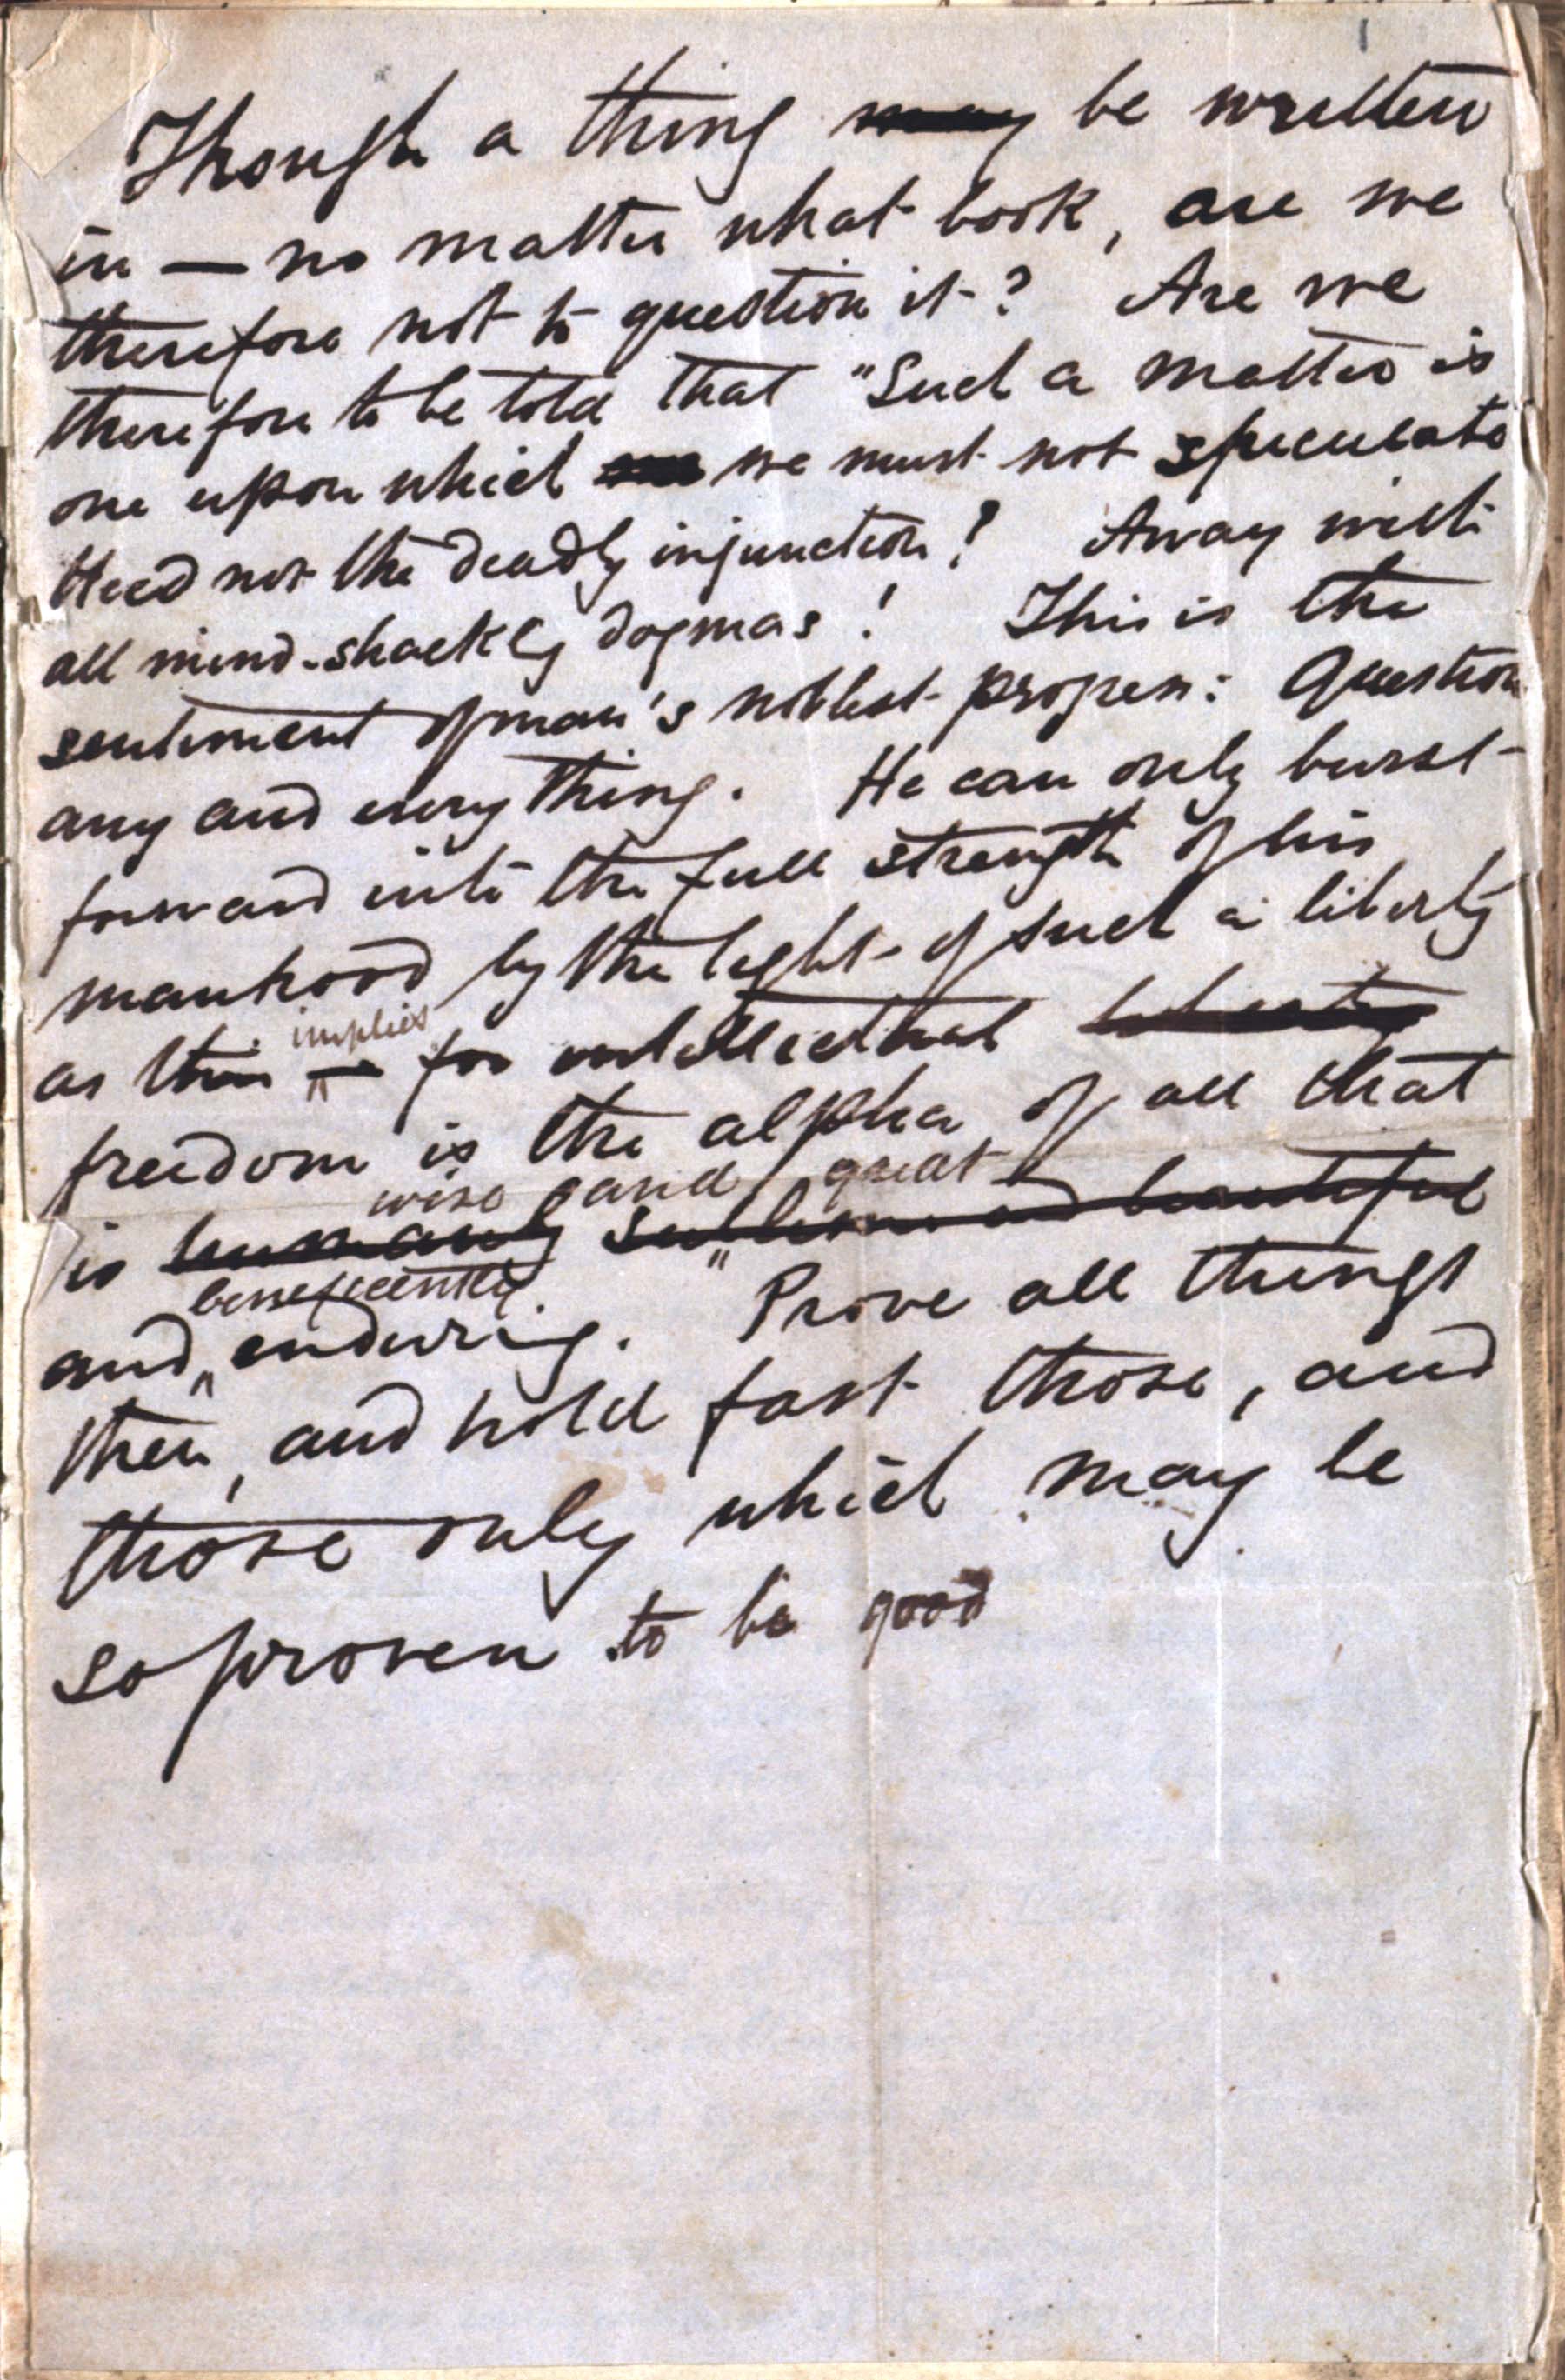 1
Though a thing may be written
in — no matter what book, are we
therefore not to question it? Are we
therefore to be told that "Such a matter is
one upon which we must not speculate
Heed not the deadly injunction! Away with
all mind-shackly dogmas! This is the
sentiment of man's noblest progress: Question
any and every thing. He can only burst
forward into the full strength of his
manhood by the light of such a liberty
as this implies — for intellectual liberty
freedom is the alpha of all that
wise and great
is humanly sublime and beautiful
beneficently
and enduring. "Prove all things
then, and hold fast those, and
those only which may be
so proven to be good